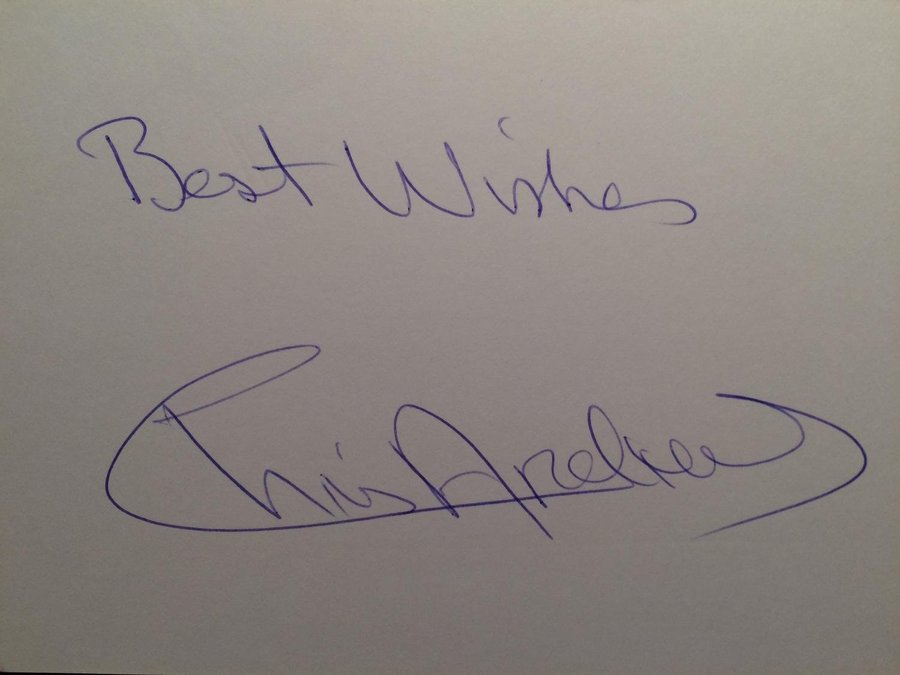 Best Wishes
Chris Andrews